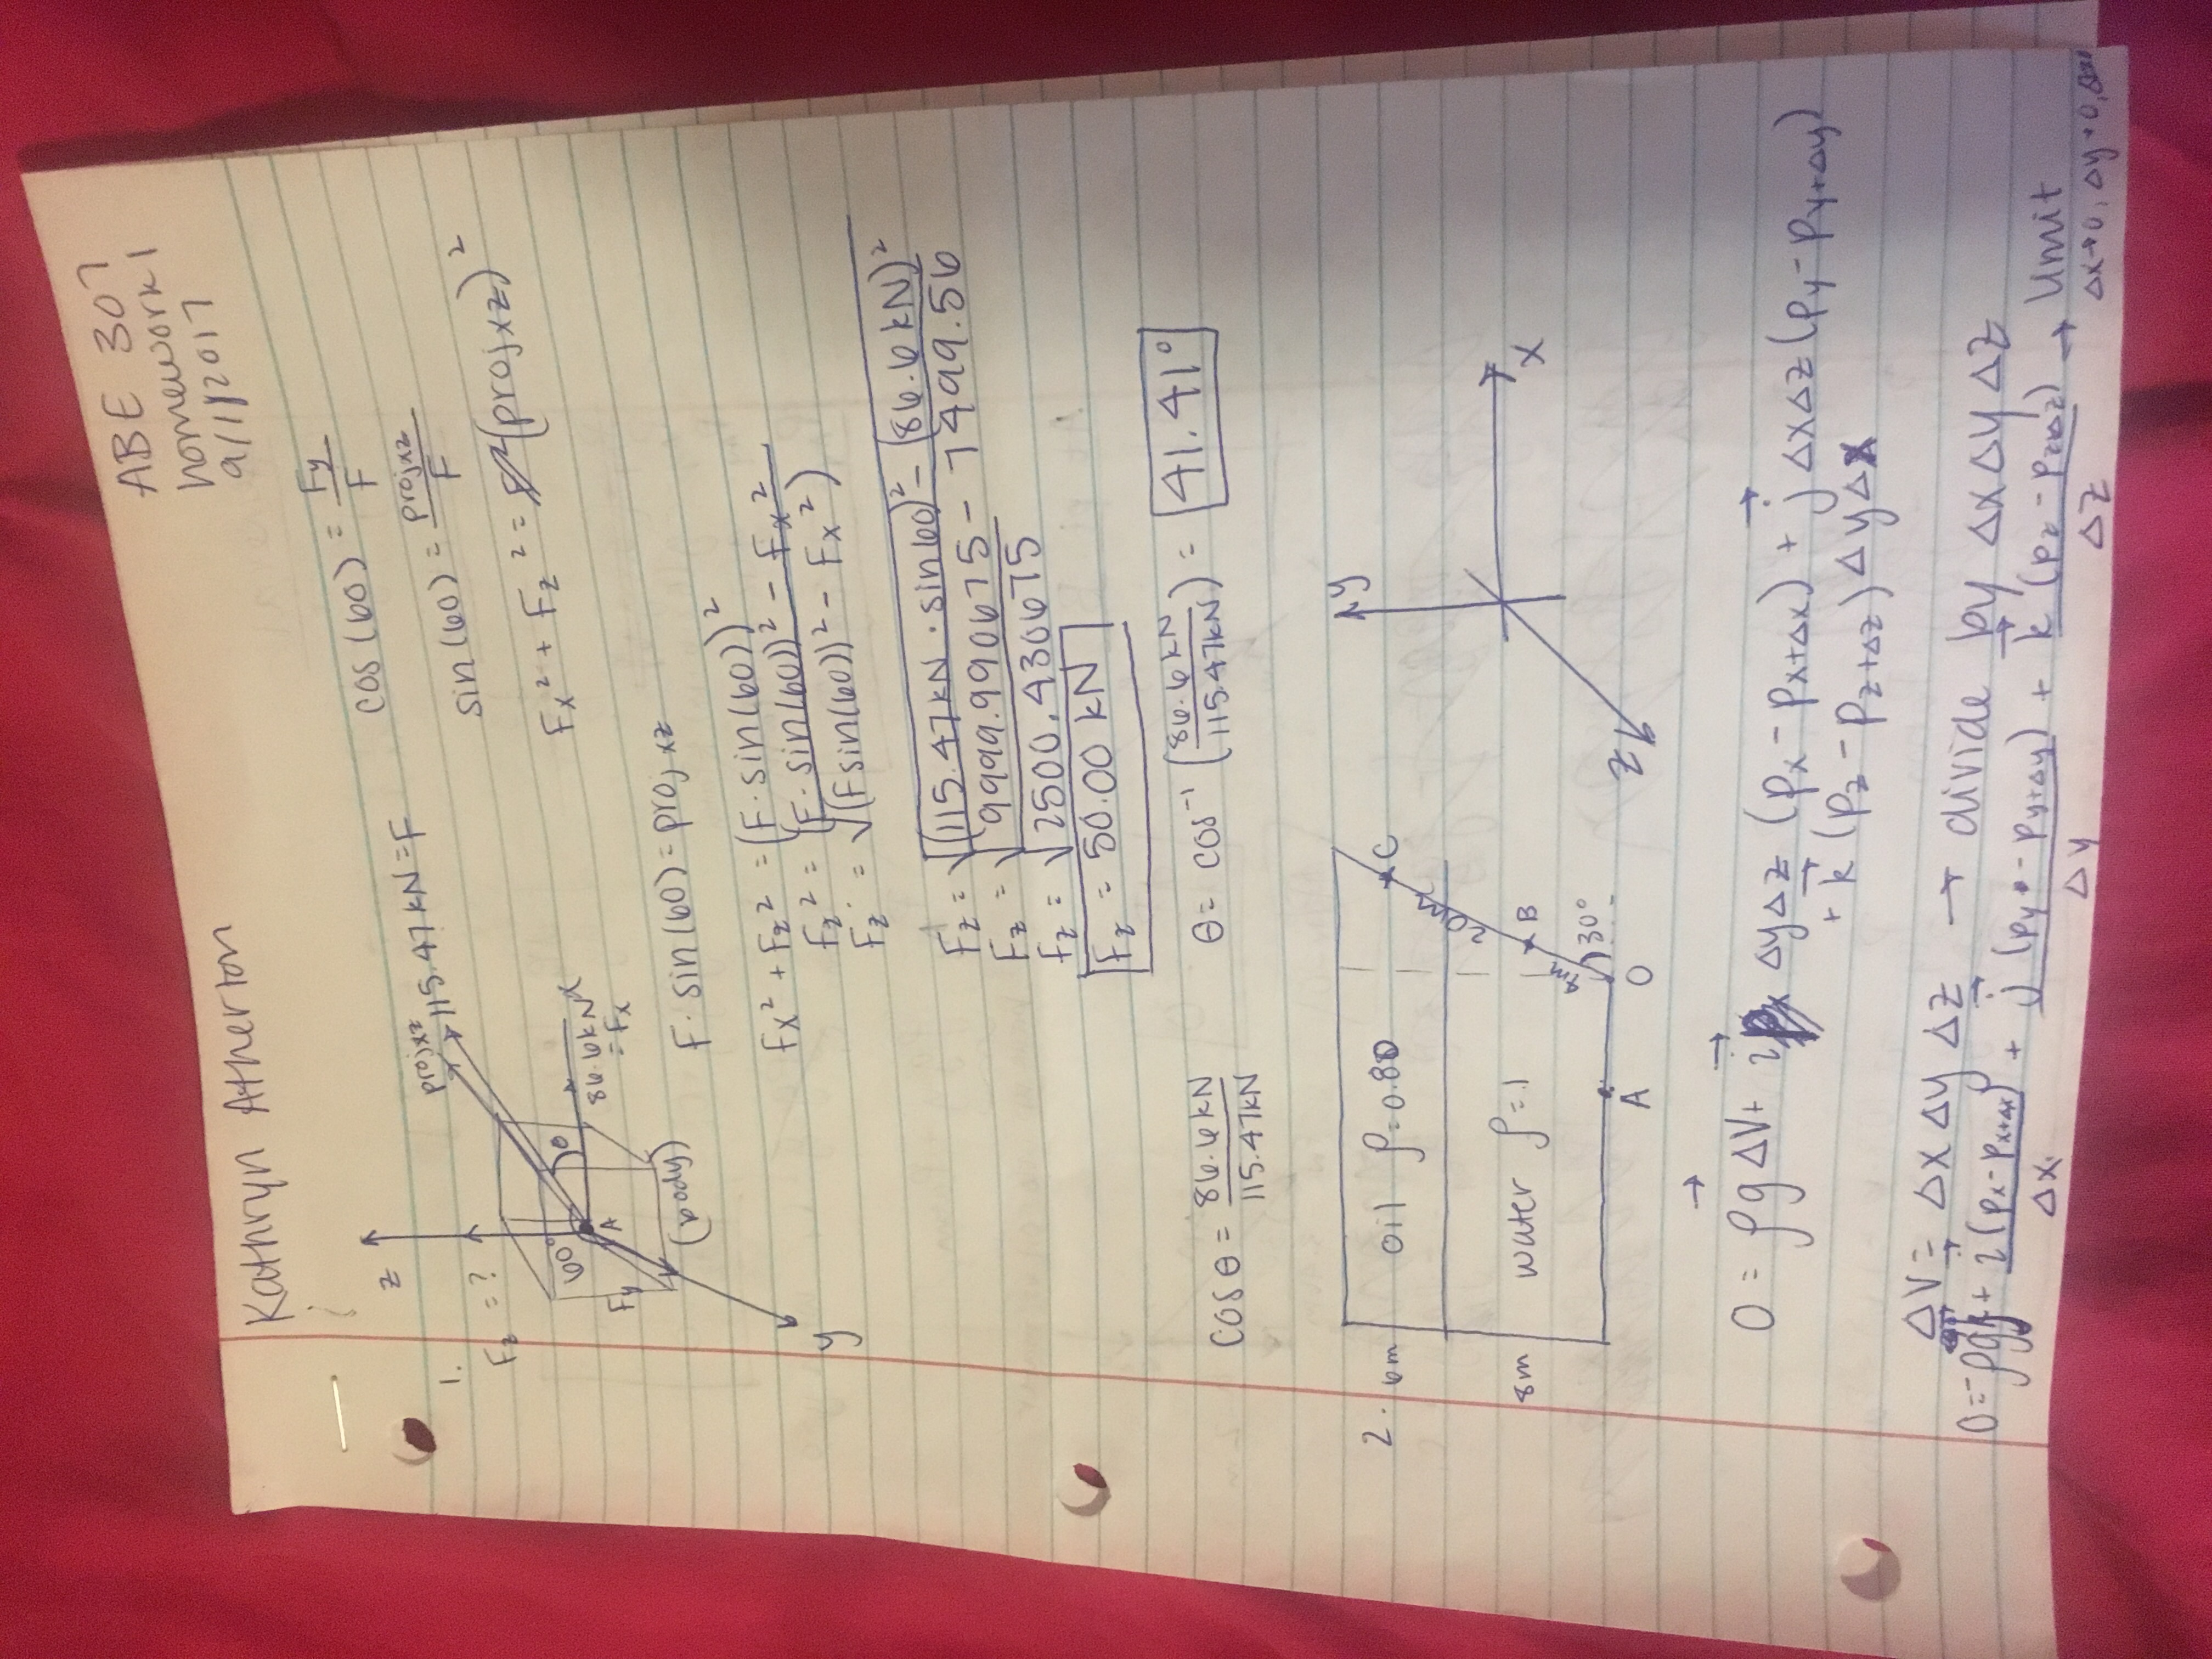 ABE 307
homework 1
9/1/2017
Kathryn Atherton
1.
z
Fz = ?
projxz
115.47 kN = F
60°
θ
A
86.6 kN
= Fx
x
Fy
(body)
y
cos(60) = Fy/F
sin(60) = projxz/F
Fx² + Fz² = (projxz)²
F · sin(60) = proj xz
Fx² + Fz² = (F · sin(60))²
Fz² = (F · sin(60))² - Fx²
Fz = √((F sin(60))² - Fx²)
Fz = √((115.47 kN · sin 60)² - (86.6 kN)²)
Fz = √(9999.990675 - 7499.56)
Fz = √2500.430675
Fz = 50.00 kN
cos θ = 86.6 kN/115.47 kN
θ = cos⁻¹ (86.6 kN/115.47 kN) = 41.41°
2.
6m
oil ρ = 0.80
C
20m
8m
water ρ = 1
B
4m
30°
A
O
y
x
z
0 = ρg⃗ΔV + i⃗ ΔyΔz (px - px+Δx) + j⃗ ΔxΔz (py - py+Δy)
+ k⃗ (pz - pz+Δz) ΔyΔx
ΔV = Δx Δy Δz → divide by ΔxΔyΔz
0 = -ρgj⃗ + i⃗ (px - px+Δx)/Δx + j⃗ (py - py+Δy)/Δy + k⃗ (pz - pz+Δz)/Δz → limit
Δx→0, Δy→0,